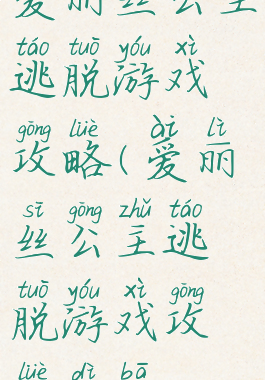 爱丽丝公主
táo tuō yóu xì
逃脱游戏
gōng lüè ài lì
攻略(爱丽
sī gōng zhǔ táo
丝公主逃
tuō yóu xì gōng
脱游戏攻
lüè dì bā